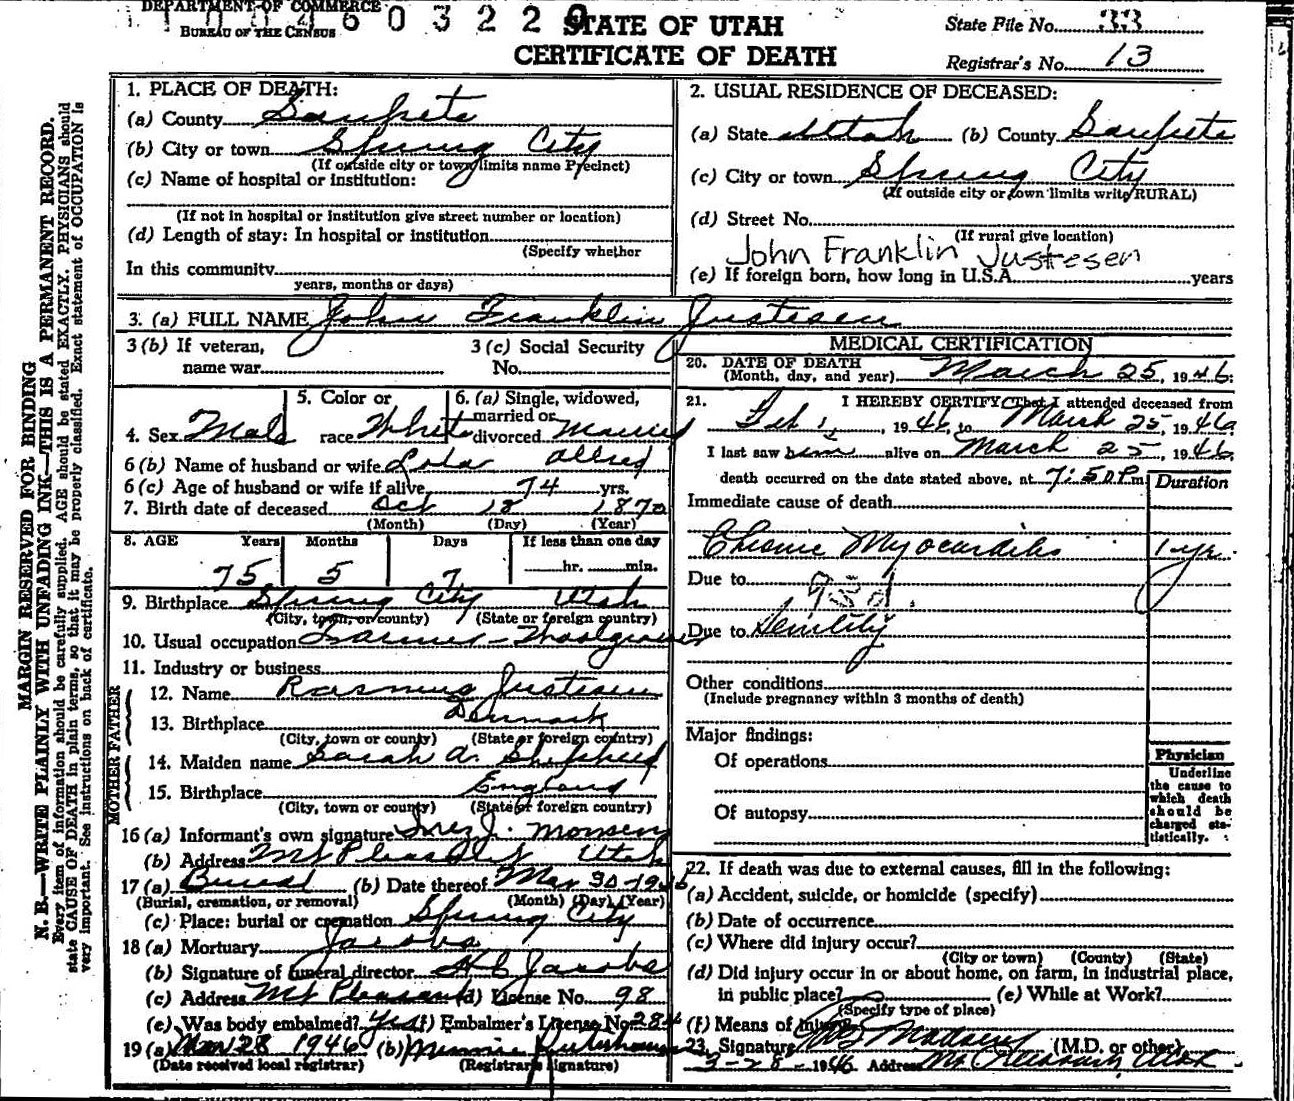 DEPARTMENT OF COMMERCE
BUREAU OF THE CENSUS
STATE OF UTAH
CERTIFICATE OF DEATH
State File No. 33
Registrar's No. 13
MARGIN RESERVED FOR BINDING
N. B.—WRITE PLAINLY WITH UNFADING INK—THIS IS A PERMANENT RECORD.
Every item of information should be carefully supplied. AGE should be stated EXACTLY. PHYSICIANS should
state CAUSE OF DEATH in plain terms, so that it may be properly classified. Exact statement of OCCUPATION is
very important. See instructions on back of certificate.
1. PLACE OF DEATH:
(a) County Sanpete
(b) City or town Spring City
(If outside city or town limits name Precinct)
(c) Name of hospital or institution:
(If not in hospital or institution give street number or location)
(d) Length of stay: In hospital or institution
(Specify whether
In this community
years, months or days)
2. USUAL RESIDENCE OF DECEASED:
(a) State Utah (b) County Sanpete
(c) City or town Spring City
(If outside city or town limits write RURAL)
(d) Street No.
(If rural give location)
John Franklin Justesen
(e) If foreign born, how long in U.S.A. years
3. (a) FULL NAME John Franklin Justesen
3 (b) If veteran, name war
3 (c) Social Security No.
4. Sex Male
5. Color or race White
6. (a) Single, widowed, married or divorced Married
6 (b) Name of husband or wife Lola Allred
6 (c) Age of husband or wife if alive 74 yrs.
7. Birth date of deceased Oct 18 1870
(Month) (Day) (Year)
8. AGE Years Months Days If less than one day
75 5 7 hr. min.
9. Birthplace Spring City Utah
(City, town, or county) (State or foreign country)
10. Usual occupation Farmer - Woolgrower
11. Industry or business
FATHER
12. Name Rasmus Justesen
13. Birthplace Denmark
(City, town or county) (State or foreign country)
MOTHER
14. Maiden name Sarah A. Shepherd
15. Birthplace England
(City, town or county) (State or foreign country)
16 (a) Informant's own signature Inez J. Monsen
(b) Address Mt Pleasant Utah
17 (a) Burial (b) Date thereof Mar 30-1946
(Burial, cremation, or removal) (Month) (Day) (Year)
(c) Place: burial or cremation Spring City
18 (a) Mortuary Jacobs
(b) Signature of funeral director H C Jacobs
(c) Address Mt Pleasant (d) License No. 98
(e) Was body embalmed? Yes (f) Embalmer's License No. 284
19 (a) Mar 28 1946 (b) Minnie
(Date received local registrar) (Registrar's signature)
MEDICAL CERTIFICATION
20. DATE OF DEATH
(Month, day, and year) March 25, 1946.
21. I HEREBY CERTIFY, That I attended deceased from
Feb 1, 1946, to March 25, 1946
I last saw him alive on March 25, 1946.
death occurred on the date stated above, at 7:50 P.m
Duration
Immediate cause of death
Chronic Myocarditis 1 yr.
Due to
Due to Senility
Other conditions
(Include pregnancy within 3 months of death)
Major findings:
Of operations
Of autopsy
Physician
Underline
the cause to
which death
should be
charged sta-
tistically.
22. If death was due to external causes, fill in the following:
(a) Accident, suicide, or homicide (specify)
(b) Date of occurrence
(c) Where did injury occur?
(City or town) (County) (State)
(d) Did injury occur in or about home, on farm, in industrial place,
in public place? (e) While at Work?
(Specify type of place)
(f) Means of Injury
23. Signature Madsen (M.D. or other)
3-28-1946 Address Mt Pleasant, Utah